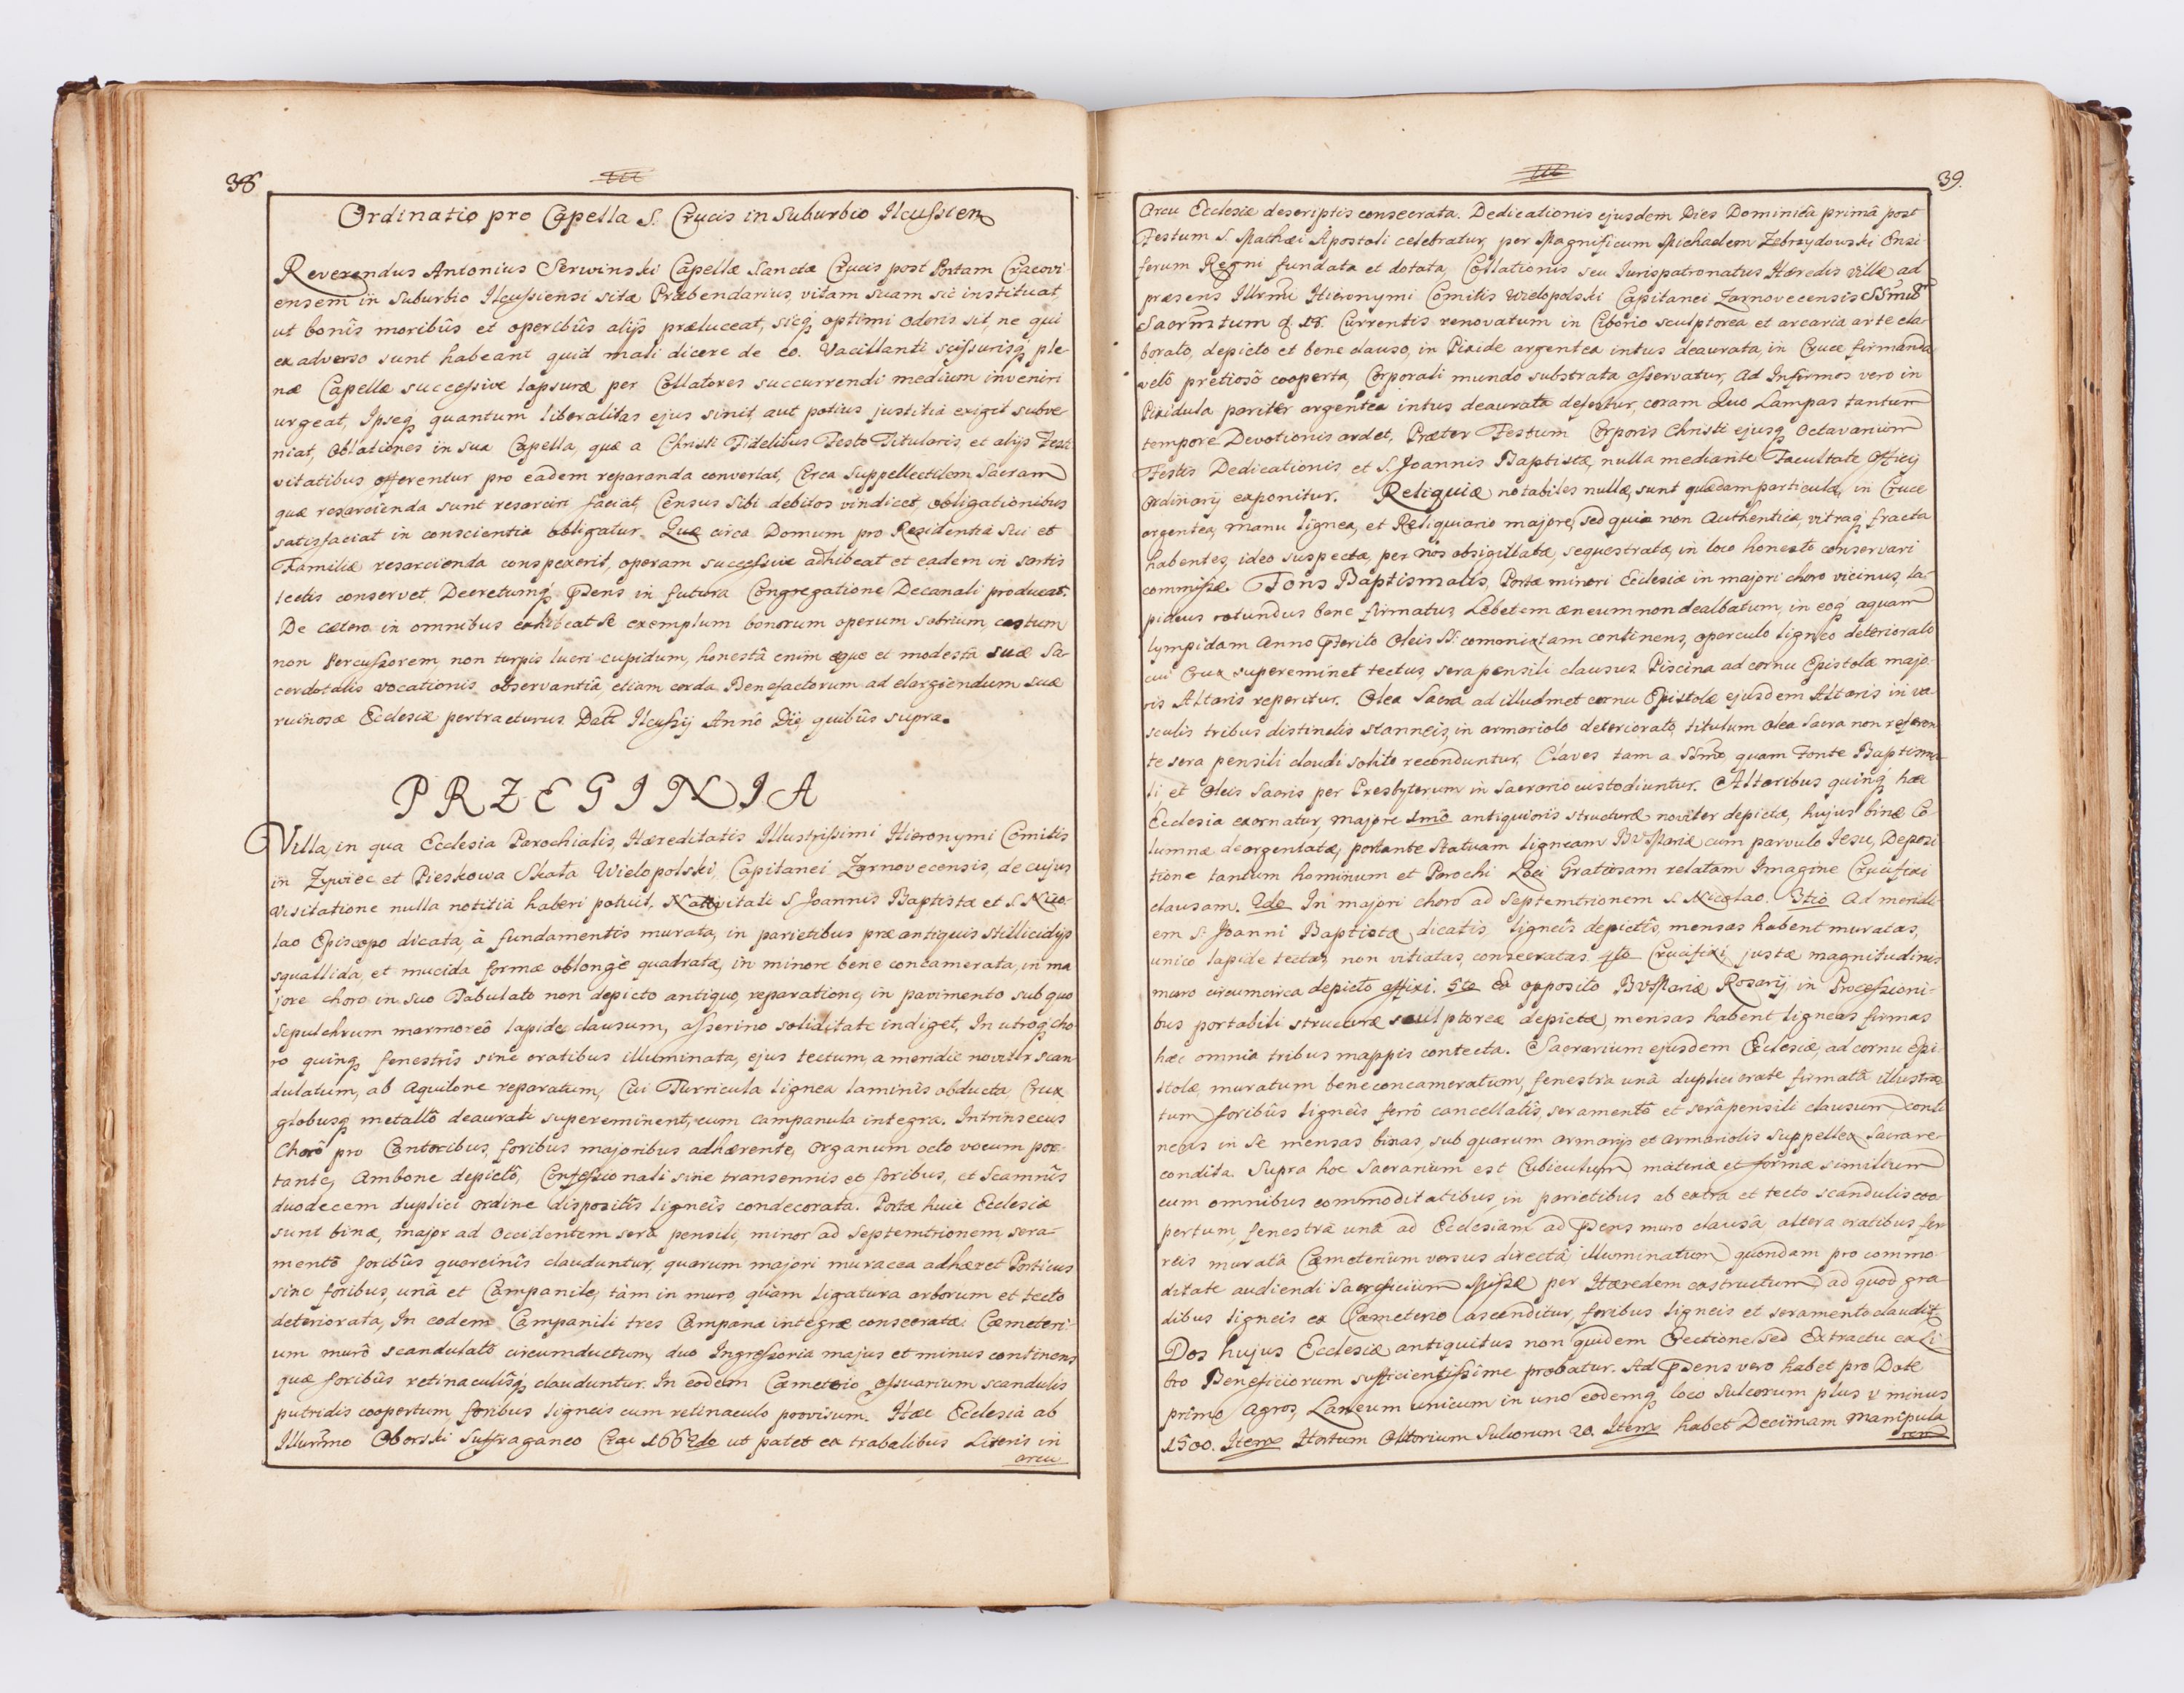 38
Ordinatio pro Capella S. Crucis in Suburbio Ilcussien
Reverendus Antonius Serwinski Capellæ Sanctæ Crucis post Portam Cracovi-
ensem in Suburbio Ilcussiensi sitæ Præbendarius, vitam suam sic instituat,
ut bonîs moribûs et operibûs alijs præluceat, sicq optimi odoris sit, ne qui
ex adverso sunt habeant quid mali dicere de eo. Vacillanti scissurisq ple-
næ Capellæ successive lapsuræ per Collatores succurrendi medium inveniri
urgeat, Ipseq quantum liberalitas ejus sinit, aut potius justitia exigit subve-
niat, Oblationes in sua Capella, quæ a Christi Fidelibus Festo Titularis, et alijs Festi
vitatibus offerentur pro eadem reparanda convertat, Circa Suppellectilem Sacram
quæ resarcienda sunt resarciri faciat, Census sibi debitos vindicet, obligationibus
satisfaciat in conscientia obligatur. Quæ circa Domum pro Residentia Sui et
Familiæ resarcienda conspexerit, operam successive adhibeat et eadem in sartis
tectis conservet. Decretumq Pens in futura Congregatione Decanali producat.
De cætero in omnibus exhibeat se exemplum bonorum operum sobrium, castum
non Percussorem, non turpis lucri cupidum, honestâ enim æque et modestâ suæ Sa-
cerdotalis vocationis observantiâ, etiam corda Benefactorum ad elargiendum suæ
ruinosæ Ecclesiæ pertracturus. Datt Ilcussij Annô Dîe quibûs supra.
PRZEGINIA
Villa, in qua Ecclesia Parochialis, Hæreditatis Illustrissimi Hieronymi Comitis
in Zywiec et Pieskowa Skała Wielopolski, Capitanei Zarnovecensis, de cujus
Visitatione nulla notitia haberi potuit. Nativitati S Joannis Baptistæ et S. Nico-
lao Episcopo dicata, à fundamentis murata, in parietibus præ antiquis stillicidijs
squallida, et mucida formæ oblongè quadratæ, in minore bene concamerata, in ma
jore choro in suo Tabulato non depicto antiquo, reparatione, in pavimento sub quo
Sepulchrum marmoreô lapide clausum, asserino soliditate indiget, In utroq cho-
ro quinq fenestrîs sine cratibus illuminata, ejus tectum, a meridie noviter scan
dulatum, ab Aquilone reparatum, Cui Turricula lignea laminis obducta, Crux
globusq metallô deaurati supereminent, cum campanula integra. Intrinsecus
Chorô pro Cantoribus, foribus majoribus adhærente, Organum octo vocum por-
tante, Ambone depictô, Confessionali sine transennis et foribus, et Scamnîs
duodecem duplici ordine dispositîs ligneîs condecorata. Portæ huic Ecclesiæ
sunt binæ, major ad Occidentem serâ pensili, minor ad Septemtrionem sera-
mentô foribûs quercinîs clauduntur, quarum majori muracea adhæret Porticus
sine foribus, unâ et Campanile, tàm in muro, quàm ligatura arborum et tecto
deteriorata, In eodem Campanili tres Campanæ integræ consecratæ. Cæmeteri-
um murô scandulatô circumductum, duo Ingressoria majus et minus continens
quæ foribûs retinaculîsq clauduntur. In eodem Cæmeterio ossuarium scandulis
putridis coopertum foribus ligneis cum retinaculo provisum. Hæc Ecclesia ab
Illurmo Oborski Suffraganeo Crac 1662do ut patet ex trabalibus Literis in
arcu
39.
Arcu Ecclesiæ descriptis consecrata. Dedicationis ejusdem Dies Dominicâ primâ post
Festum S. Mathæi Apostoli celebratur, per Magnificum Michaelem Zebrzydowski Ensi-
ferum Regni fundata et dotata, Collationis seu Jurispatronatus Hæredis Villæ ad
præsens Illrmi Hieronymi Comitis Wielopolski Capitanei Zarnovecensis SSmu
Sacrmtum d. 18. Currentis renovatum in Ciborio sculptorea et arcaria arte ela-
borato, depicto et bene clauso, in Pixide argentea intus deaurata, in Cruce firmanda
velô pretiosô cooperta, Corporali mundo substrata asservatur, Ad Infirmos vero in
Pixidula pariter argentea intus deaurata defertur, coram Quo Lampas tantum
tempore Devotionis ardet, Præter Festum Corporis Christi ejusq Octavarium
Festis Dedicationis et S. Joannis Baptistæ, nulla mediante Facultate Officij
Ordinarij exponitur. Reliquiæ notabiles nullæ, sunt quædam particulæ, in Cruce
argentea, manu lignea, et Reliquiario majore, sed quia non Authentica, vitraq fracta
habentes, ideo suspectæ, per nos obsigillatæ, sequestratæ, in loco honesto conservari
commissæ. Fons Baptismalis, Portæ minori Ecclesiæ in majori choro vicinus, la-
pideus rotundus bene firmatus, Lebetem æneum non dealbatum, in eoq aquam
lympidam Anno Pterito Oleis SS. comonixtam continens, operculo ligneo deteriorato
cui Crux supereminet tectus, sera pensili clausus. Piscina ad cornu Epistolæ majo-
ris Altaris reperitur. Olea Sacra ad illudmet cornu Epistolæ ejusdem Altaris in va-
sculis tribus distinctis stanneis, in armariolo deteriorato, titulum Olea Sacra non referen-
te sera pensili claudi solito reconduntur, Claves tam a SSmo, quam Fonte Baptisma-
li, et Oleis Sacris per Presbyterum in Sacrario custodiuntur. Altaribus quinq hæc
Ecclesia exornatur, majore 1mô antiquioris structuræ noviter depictæ, hujus binæ Co-
lumnæ deargentatæ, portante Statuam ligneam BVMariæ cum parvulo Jesu, Deposi
tione tantum hominum et Parochi Loci Gratiosam relatam Imagine Crucifixi
clausam. 2do In majori choro ad Septemtrionem S. Nicolao. 3tio Ad meridi-
em S. Joanni Baptistæ, dicatis, ligneîs depictîs, mensas habent muratas,
unico lapide tectas, non vitiatas, consecratas. 4to Crucifixi, justæ magnitudinis
muro circumcirca depictô affixi. 5to Ex opposito BVMariæ Rosarij, in Processioni-
bus portabili structuræ sculptoreæ depictæ, mensas habent ligneas firmas
hæc omnia tribus mappis contecta. Sacrarium ejusdem Ecclesiæ, ad cornu Epi-
stolæ, muratum bene concameratum, fenestra unâ duplici crate firmatâ illustra-
tum, foribûs ligneîs ferrô cancellatîs, seramentô et serâ pensili clausum, conti
nens in se mensas binas, sub quarum armarijs et armariolis Suppellex Sacra re-
condita. Supra hoc Sacrarium est Cubiculum materiæ et formæ similium
cum omnibus commoditatibus, in parietibus ab extra et tecto scandulis coo-
pertum, fenestrâ unâ ad Ecclesiam ad Psens muro clausâ, altera cratibus fer-
reis muratâ Cæmeterium versus directâ illuminatum, quondam pro commo-
ditate audiendi Sacrificium Missæ per Hæredem exstructum, ad quod gra-
dibus ligneis ex Cæmeterio ascenditur, foribus ligneis et seramento claudit
Dos hujus Ecclesiæ antiquitus non quidem Erectione, sed Extractu ex Li-
bro Beneficiorum sufficientissime probatur. Ad Psens vero habet pro Dote
primo Agros, Laneum unicum in uno eodemq loco Sulcorum plus v minus
1500. Item Hortum Olitorium Sulcorum 20. Item habet Decimam Manipula
rem